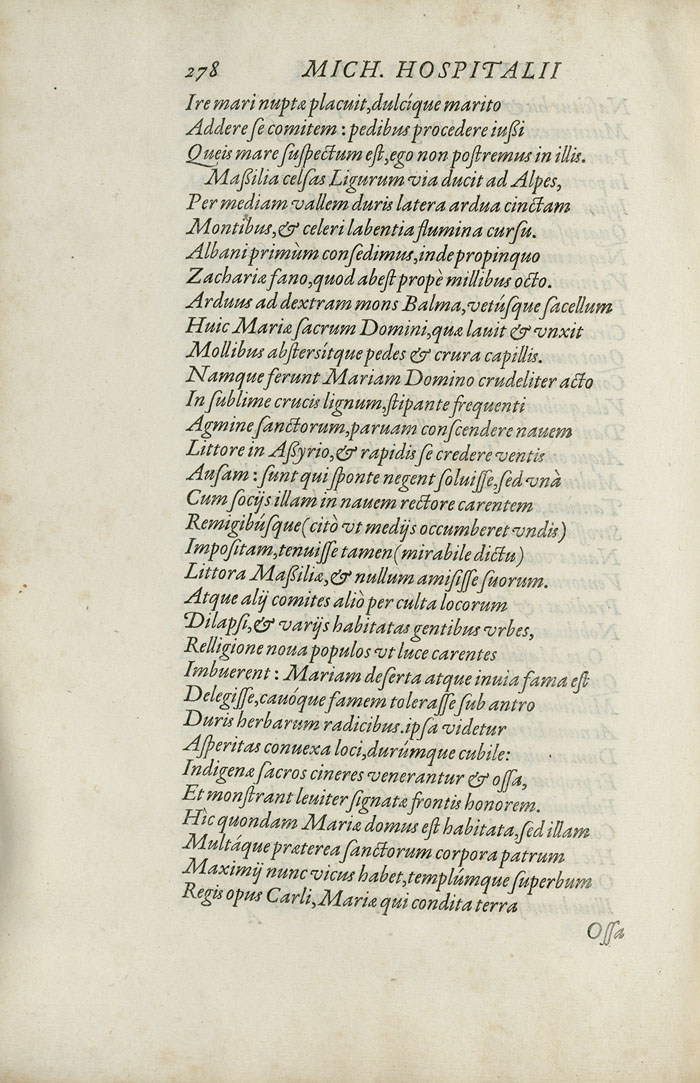 278 MICH. HOSPITALII
Ire mari nuptæ placuit, dulcíque marito
Addere ſe comitem : pedibus procedere iußi
Queis mare ſuſpectum eſt, ego non poſtremus in illis.
Maßilia celſas Ligurum via ducit ad Alpes,
Per mediam vallem duris latera ardua cinctam
Montibus, & celeri labentia flumina curſu.
Albani primùm conſedimus, inde propinquo
Zachariæ fano, quod abeſt propè millibus octo.
Arduus ad dextram mons Balma, vetúſque ſacellum
Huic Mariæ ſacrum Domini, quæ lauit & vnxit
Mollibus abſterſítque pedes & crura capillis.
Namque ferunt Mariam Domino crudeliter acto
In ſublime crucis lignum, ſtipante frequenti
Agmine ſanctorum, paruam conſcendere nauem
Littore in Aßyrio, & rapidis ſe credere ventis
Auſam : ſunt qui ſponte negent ſoluiſſe, ſed vnà
Cum ſocijs illam in nauem rectore carentem
Remigibúſque (citò vt medijs occumberet vndis)
Impoſitam, tenuiſſe tamen (mirabile dictu)
Littora Maßiliæ, & nullum amiſiſſe ſuorum.
Atque alij comites aliò per culta locorum
Dilapſi, & varijs habitatas gentibus vrbes,
Relligione noua populos vt luce carentes
Imbuerent : Mariam deſerta atque inuia fama eſt
Delegiſſe, cauóque famem toleraſſe ſub antro
Duris herbarum radicibus. ipſa videtur
Aſperitas conuexa loci, durúmque cubile:
Indigenæ ſacros cineres venerantur & oſſa,
Et monſtrant leuiter ſignatæ frontis honorem.
Hîc quondam Mariæ domus eſt habitata, ſed illam
Multáque præterea ſanctorum corpora patrum
Maximij nunc vicus habet, templúmque ſuperbum
Regis opus Carli, Mariæ qui condita terra
Oſſa